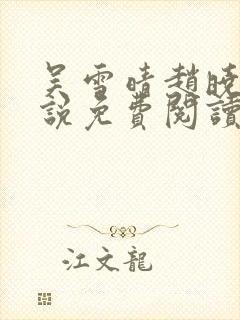 吴雪晴趙晓
說免費閱讀
江文龍